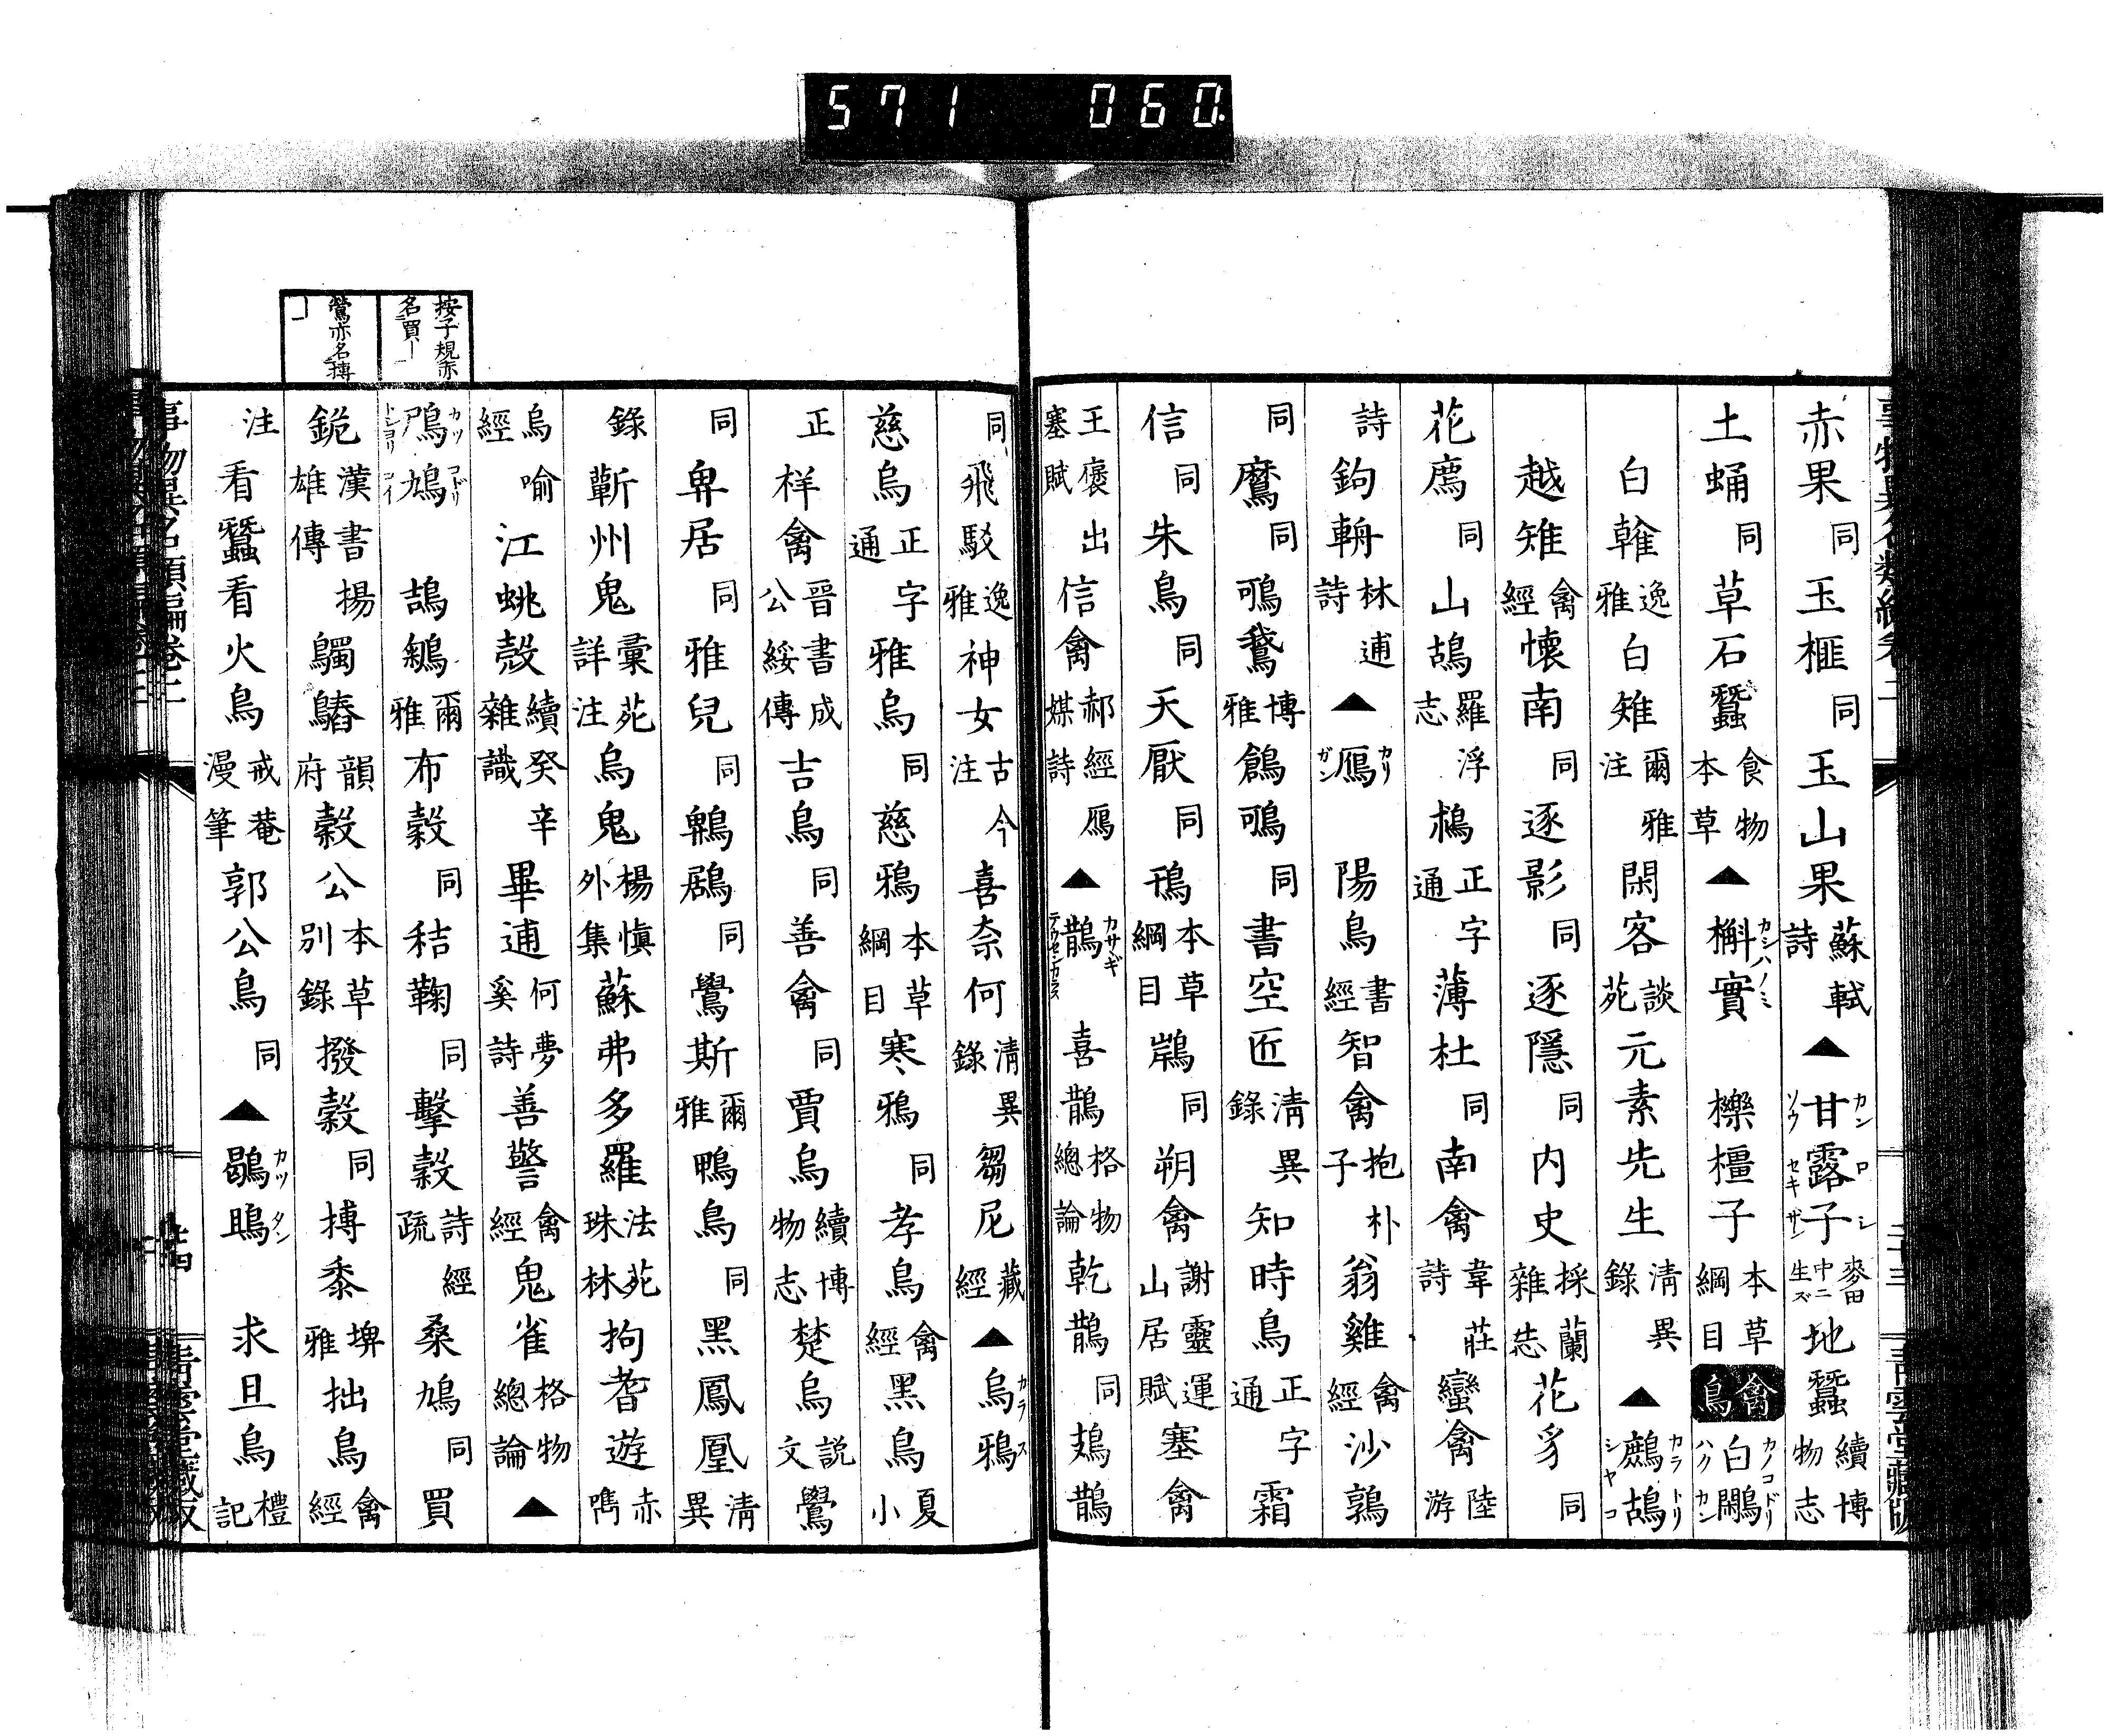 571 060
赤果同玉榧同玉山果蘇軾詩▲甘露子カンロシソウセキザン麥田中ニ生ズ地蠶續博物志
土蛹同草石蠶食物本草▲槲實カシハノミ櫟橿子本草綱目禽鳥白鷳カノコドリハクカン
白雗逸雅白雉爾雅注閑客談苑元素先生清異錄▲鷓鴣カラトリシヤコ
越雉禽經懷南同逐影同逐隱同內史採蘭雜志花豸同
花鷹同山鴣羅浮志樢正字通薄杜同南禽韋莊詩蠻禽陸游
詩鉤輈林逋詩▲鴈カリガン陽鳥書經智禽抱朴子翁雞禽經沙鶉
同鷹同鳴鵝博雅鶬鳴同書空匠清異錄知時鳥正字通霜
信同朱鳥同天厭同鳱本草綱目鴻同朔禽謝靈運山居賦塞禽
王褒塞賦出信禽郝經媒詩鴈▲鵲カサヽギテウセンカラス喜鵲格物總論乾鵲同鳷鵲
同飛駁逸雅神女古今注喜奈何清異錄芻尼藏經▲烏鴉カラス
慈烏正字通雅烏同慈鴉本草綱目寒鴉同孝烏禽經黑烏夏小
正祥禽晉書成公綏傳吉鳥同善禽同賈烏續博物志楚烏說文鸒
同卑居同雅兒同鵯鶋同鸒斯爾雅鴨烏同黑鳳凰清異
錄蘄州鬼彙苑詳注烏鬼楊慎外集蘇弗多羅法苑珠林拘耆遊赤㠢
烏經喻江蛖殼續癸辛雜識畢逋何夢奚詩善警禽經鬼雀格物總論▲
鳲鳩カツコドリトシヨリコイ鴶鵴爾雅布穀同秸鞠同擊穀詩經疏桑鳩同買
鉇漢書揚雄傳鸀䳺韻府穀公本草別錄撥穀同搏黍埤雅拙鳥禽經
注看蠶看火鳥戒菴漫筆郭公鳥同▲鶡鴠カツタン求旦鳥禮記
按子規亦名買ー
鶯亦名摶
事物異名類編卷二